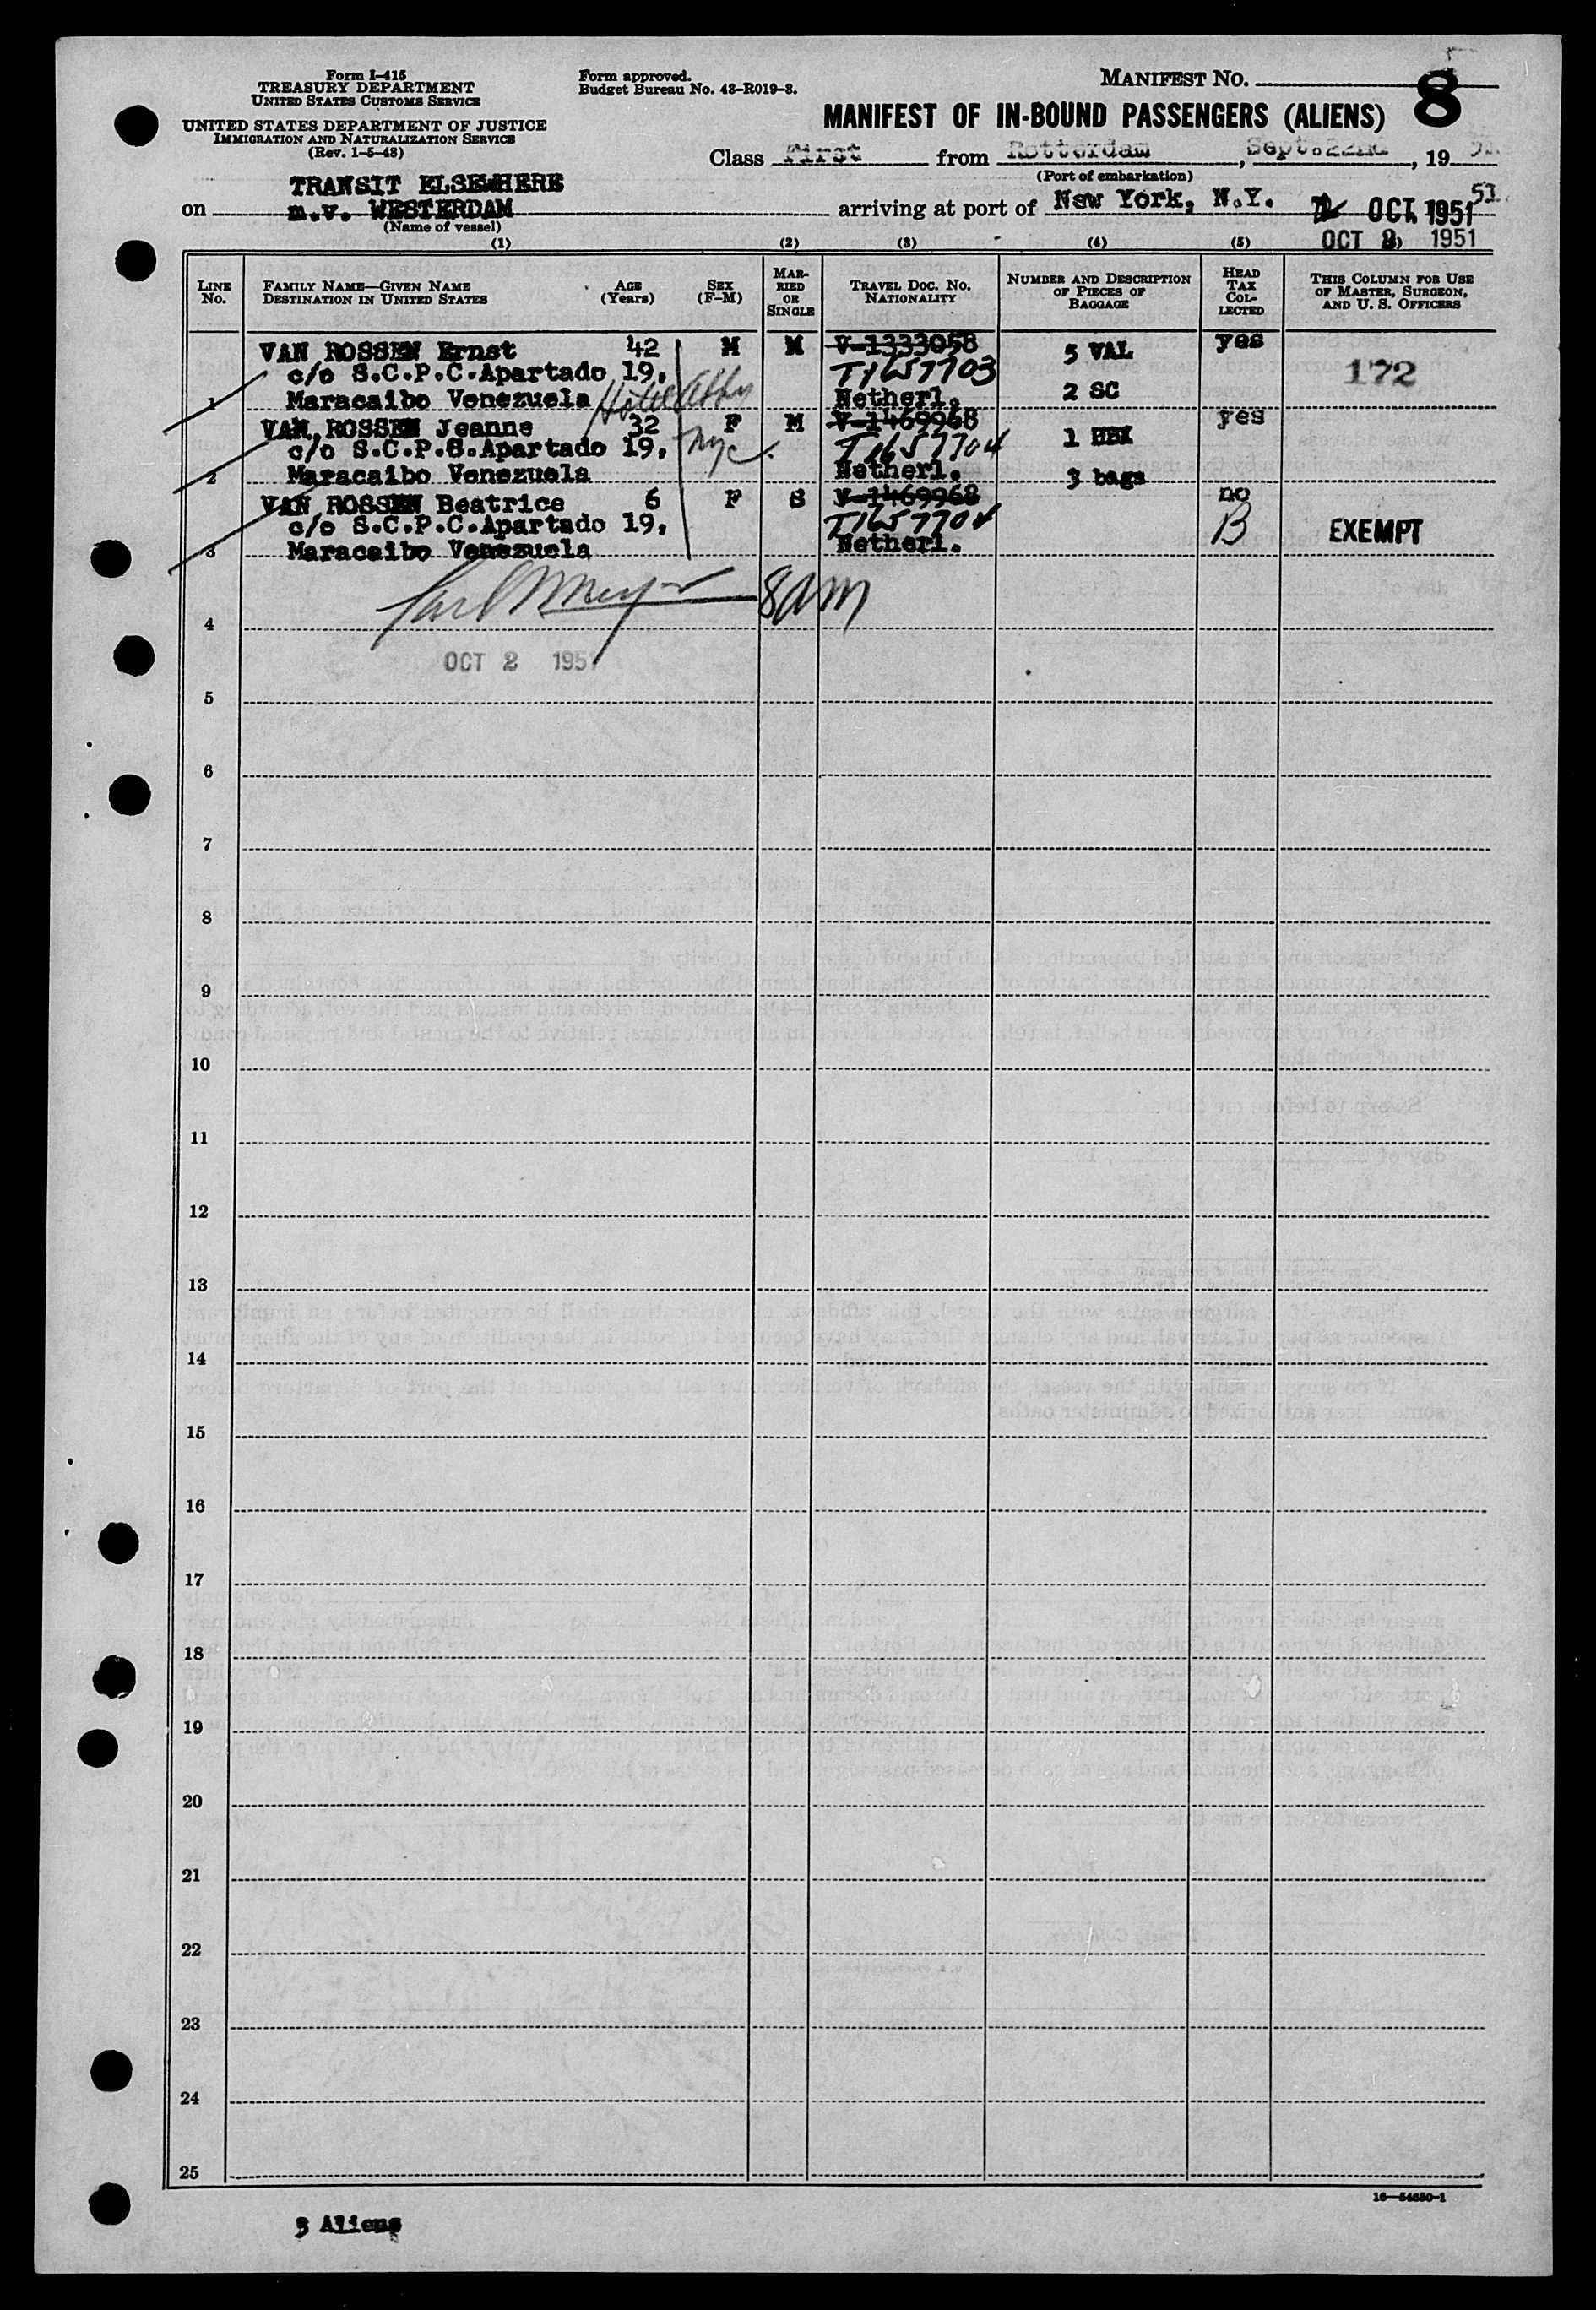 Form I-415
TREASURY DEPARTMENT
UNITED STATES CUSTOMS SERVICE
UNITED STATES DEPARTMENT OF JUSTICE
IMMIGRATION AND NATURALIZATION SERVICE
(Rev. 1-5-48)
Form approved.
Budget Bureau No. 43-R019-3.
MANIFEST NO. 8
MANIFEST OF IN-BOUND PASSENGERS (ALIENS)
Class First from Rotterdam, Sept.22nd, 19 51
(Port of embarkation)
TRANSIT ELSEWHERE
on m.v. WESTERDAM arriving at port of New York, N.Y. OCT. 1951 51
(Name of vessel)
OCT 2 1951
(1) (2) (3) (4) (5)
LINE No.
FAMILY NAME—GIVEN NAME
DESTINATION IN UNITED STATES
AGE (Years)
SEX (F-M)
MARRIED OR SINGLE
TRAVEL DOC. NO. NATIONALITY
NUMBER AND DESCRIPTION OF PIECES OF BAGGAGE
HEAD TAX COLLECTED
THIS COLUMN FOR USE OF MASTER, SURGEON, AND U. S. OFFICERS
VAN ROSSEN Ernst 42 M M V-1333058 5 VAL yes
c/o S.C.P.C.Apartado 19, T1657703 172
1 Maracaibo Venezuela Hotel Abby Netherl. 2 SC
VAN ROSSEN Jeanne 32 F M V-1469968 yes
c/o S.C.P.C.Apartado 19, NYC. T1657704 1 HBX
2 Maracaibo Venezuela Netherl. 3 bags
VAN ROSSEN Beatrice 6 F S V-1469968 no
c/o S.C.P.C.Apartado 19, T1657704 B EXEMPT
3 Maracaibo Venezuela Netherl.
8am
4
OCT 2 1951
5
6
7
8
9
10
11
12
13
14
15
16
17
18
19
20
21
22
23
24
25
16—54650-1
3 Aliens